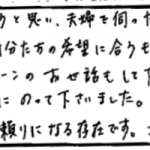 うと思い、夫婦で伺った
自分たちの希望に合うも
ーンのお世話もして頂
にのって下さいました。
頼りになる存在です。